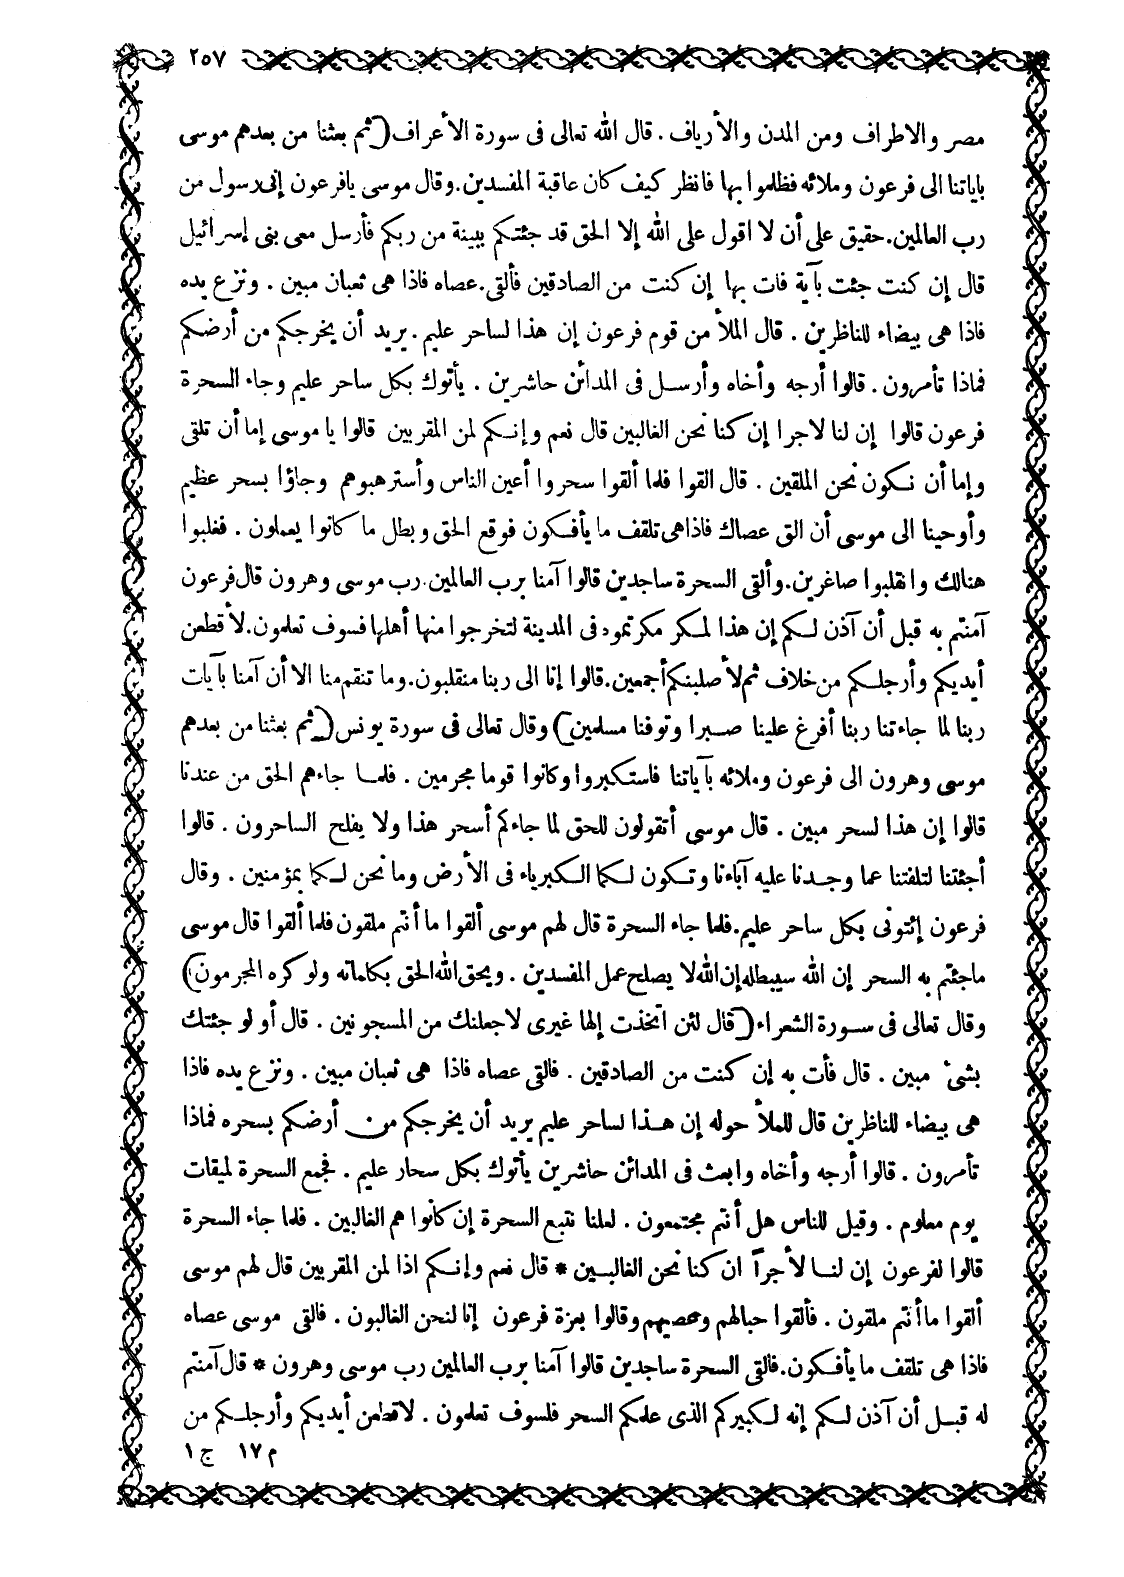 ٢٥٧
مصر والاطراف ومن المدن والأرياف . قال الله تعالى فى سورة الأعراف ( ثم بعثنا من بعدهم موسى
باياتنا الى فرعون وملائه فظلموا بها فانظر كيف كان عاقبة المفسدين . وقال موسى يافرعون إنى رسول من
رب العالمين . حقيق على أن لا اقول على الله إلا الحق قد جئتكم ببينة من ربكم فأرسل معى بنى إسرائيل
قال إن كنت جئت بآية فات بها إن كنت من الصادقين فألقى . عصاه فاذا هى ثعبان مبين . ونزع يده
فاذا هى بيضاء للناظرين . قال الملأ من قوم فرعون إن هذا لساحر عليم . يريد أن يخرجكم من أرضكم
فماذا تأمرون . قالوا أرجه وأخاه وأرسل فى المدائن حاشرين . يأتوك بكل ساحر عليم وجاء السحرة
فرعون قالوا إن لنا لاجرا إن كنا نحن الغالبين قال نعم وإنكم لمن المقربين قالوا يا موسى إما أن تلقى
وإما أن نكون نحن الملقين . قال القوا فلما ألقوا سحروا أعين الناس وأسترهبوهم وجاؤا بسحر عظيم
وأوحينا الى موسى أن الق عصاك فاذاهى تلقف ما يأفكون فوقع الحق وبطل ما كانوا يعملون . فغلبوا
هنالك وانقلبوا صاغرين . وألقى السحرة ساجدين قالوا آمنا برب العالمين . رب موسى وهرون قال فرعون
آمنتم به قبل أن آذن لكم إن هذا لمكر مكرتموه فى المدينة لتخرجوا منها أهلها فسوف تعلمون . لأقطعن
أيديكم وأرجلكم من خلاف ثم لأصلبنكم أجمعين . قالوا إنا الى ربنا منقلبون . وما تنقم منا الا أن آمنا بآيات
ربنا لما جاءتنا ربنا أفرغ علينا صبرا وتوفنا مسلمين ) وقال تعالى فى سورة يونس ( ثم بعثنا من بعدهم
موسى وهرون الى فرعون وملائه بآياتنا فاستكبروا وكانوا قوما مجرمين . فلما جاءهم الحق من عندنا
قالوا إن هذا لسحر مبين . قال موسى أتقولون للحق لما جاءكم أسحر هذا ولا يفلح الساحرون . قالوا
أجئتنا لتلفتنا عما وجدنا عليه آباءنا وتكون لكما الكبرياء فى الأرض وما نحن لكما بمؤمنين . وقال
فرعون إئتونى بكل ساحر عليم . فلما جاء السحرة قال لهم موسى ألقوا ما أنتم ملقون فلما ألقوا قال موسى
ماجئتم به السحر إن الله سيبطله إن الله لا يصلح عمل المفسدين . ويحق الله الحق بكلماته ولو كره المجرمون )
وقال تعالى فى سورة الشعراء ( قال لئن اتخذت إلها غيرى لاجعلنك من المسجونين . قال أو لو جئتك
بشىء مبين . قال فأت به إن كنت من الصادقين . فالقى عصاه فاذا هى ثعبان مبين . ونزع يده فاذا
هى بيضاء للناظرين قال للملأ حوله إن هذا لساحر عليم يريد أن يخرجكم من أرضكم بسحره فماذا
تأمرون . قالوا أرجه وأخاه وابعث فى المدائن حاشرين يأتوك بكل سحار عليم . فجمع السحرة لميقات
يوم معلوم . وقيل للناس هل أنتم مجتمعون . لعلنا نتبع السحرة إن كانوا هم الغالبين . فلما جاء السحرة
قالوا لفرعون إن لنا لأجرآ ان كنا نحن الغالبين * قال نعم وإنكم اذا لمن المقربين قال لهم موسى
ألقوا ما أنتم ملقون . فألقوا حبالهم وعصيهم وقالوا بعزة فرعون إنا لنحن الغالبون . فالقى موسى عصاه
فاذا هى تلقف ما يأفكون . فالقى السحرة ساجدين قالوا آمنا برب العالمين رب موسى وهرون * قال آمنتم
له قبل أن آذن لكم إنه لكبيركم الذى علمكم السحر فلسوف تعلمون . لاقطعن أيديكم وأرجلكم من
م ١٧ ج ١